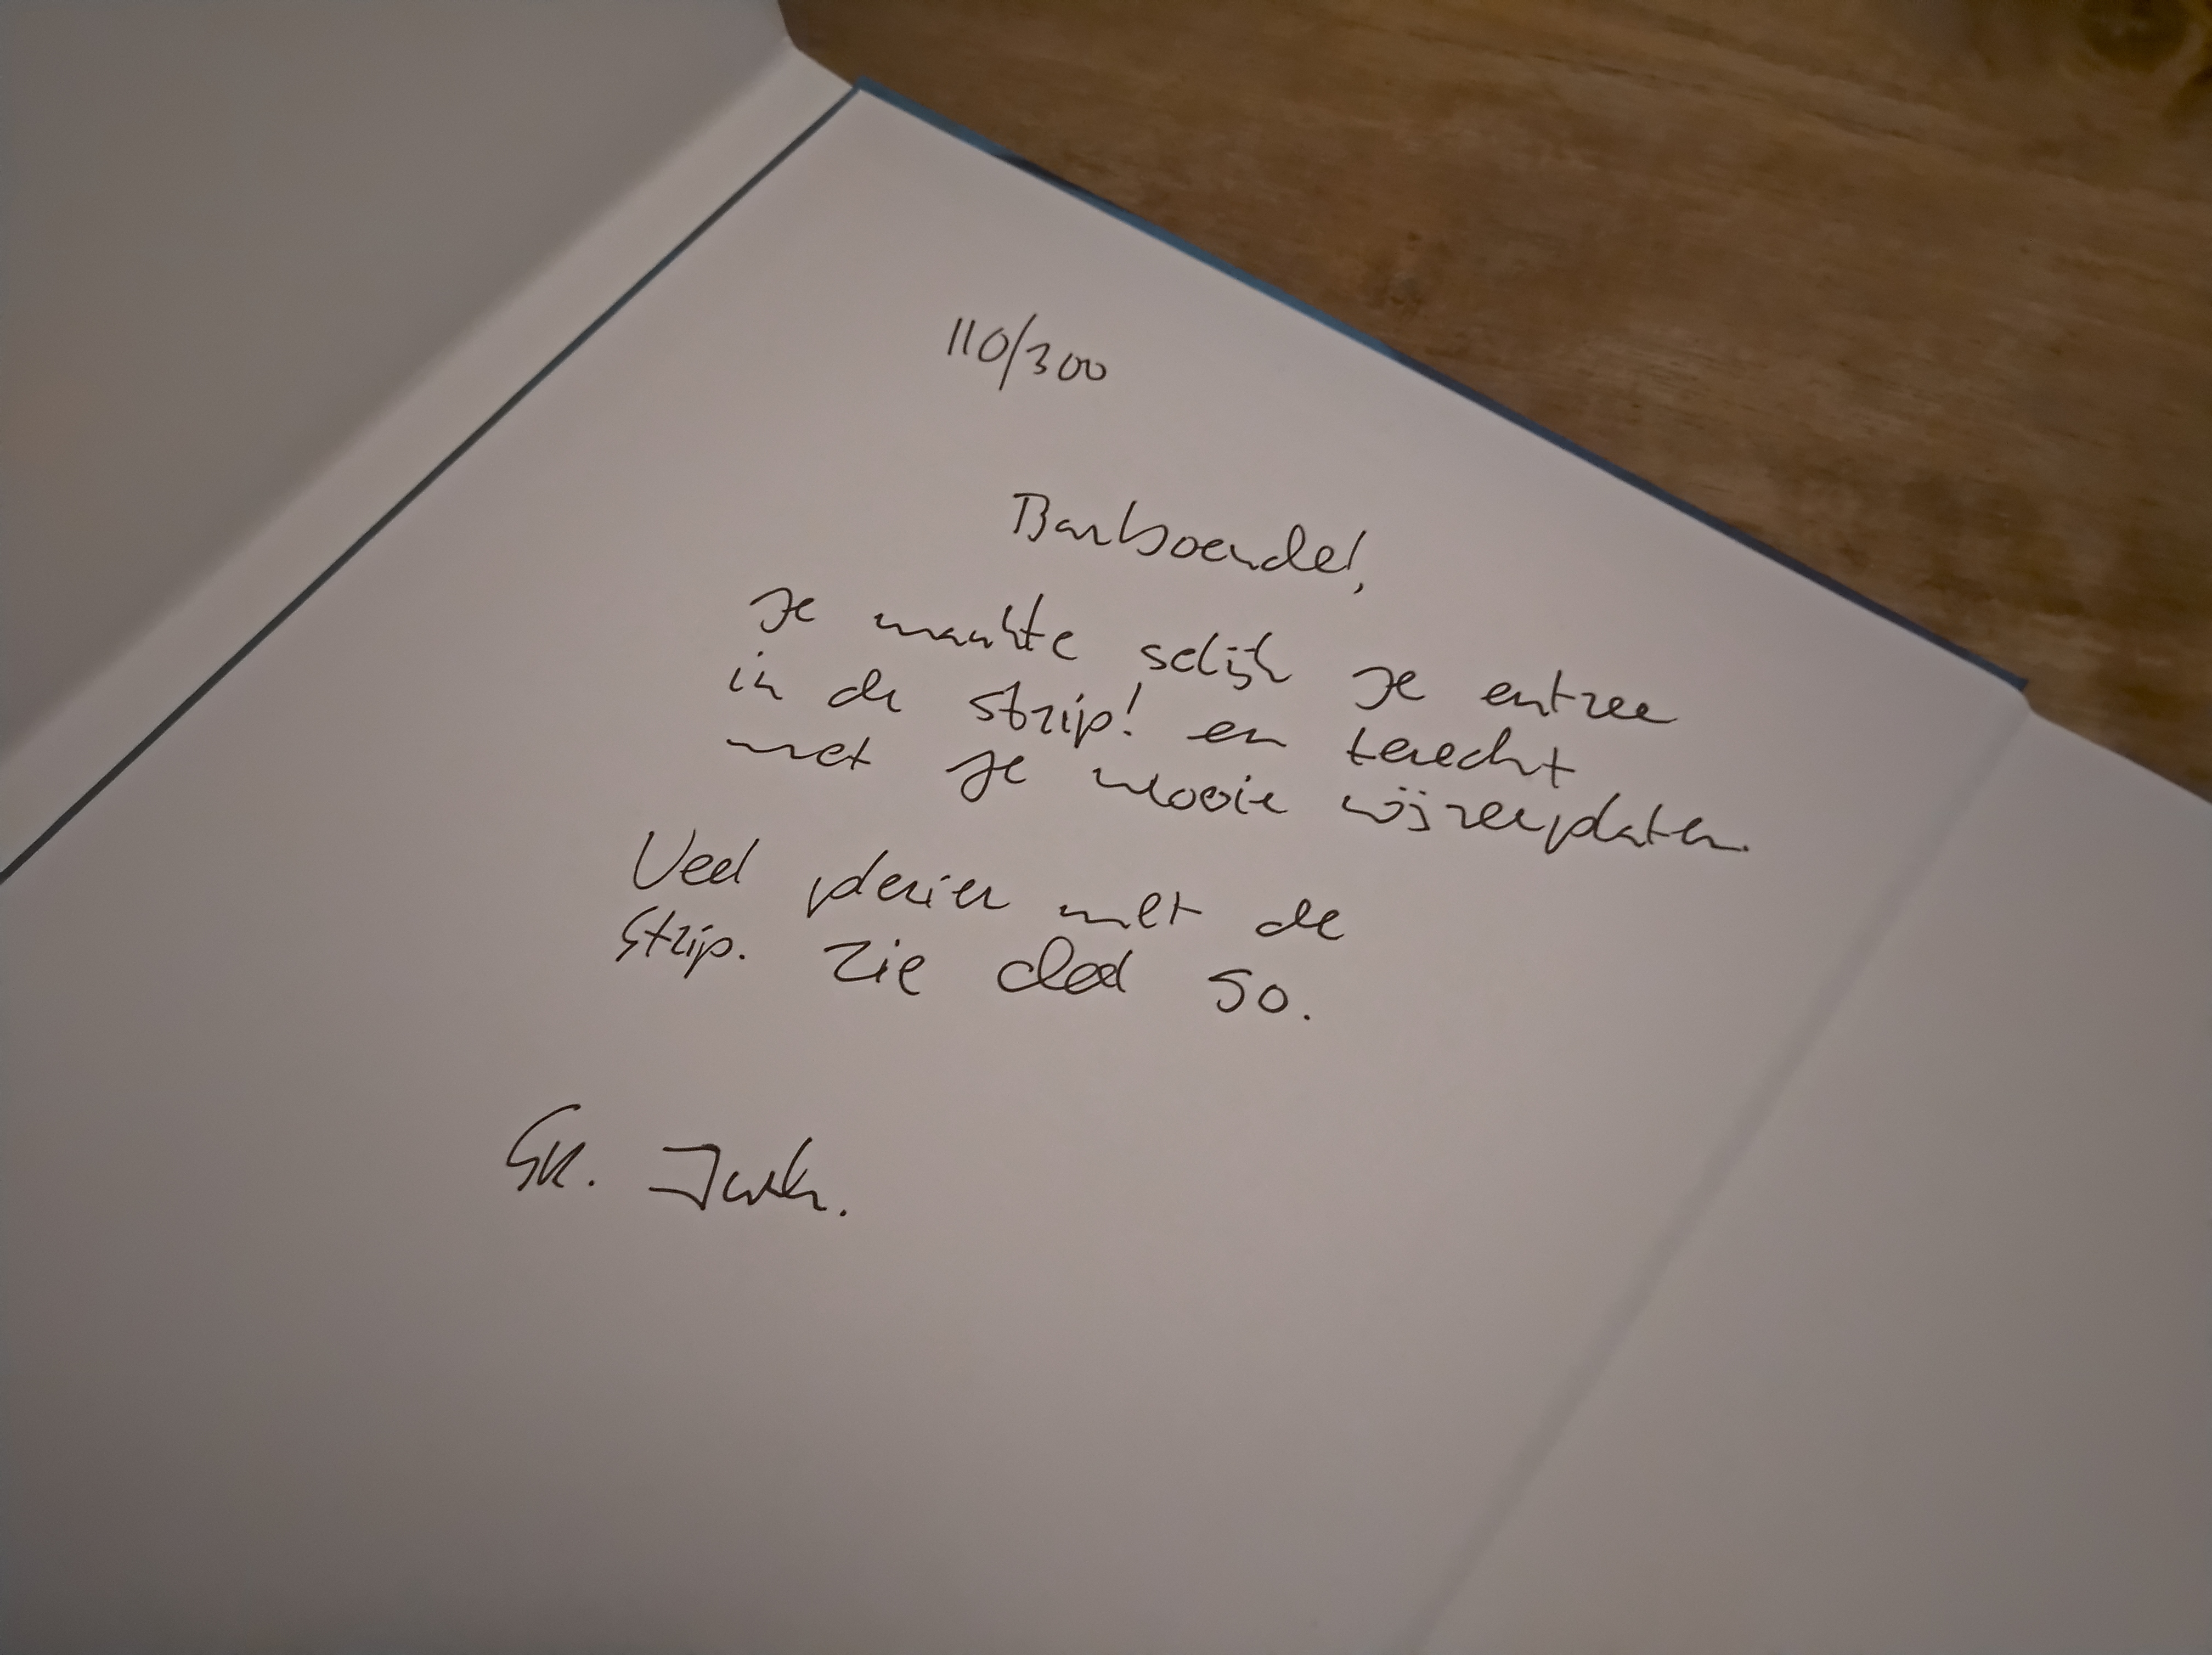 110/300
Barboendel,
Je maakte gelijk je entree
in de strip! en terecht
met je mooie wijzerplaten.
Veel plezier met de
strip. Zie blad 50.
Gr.